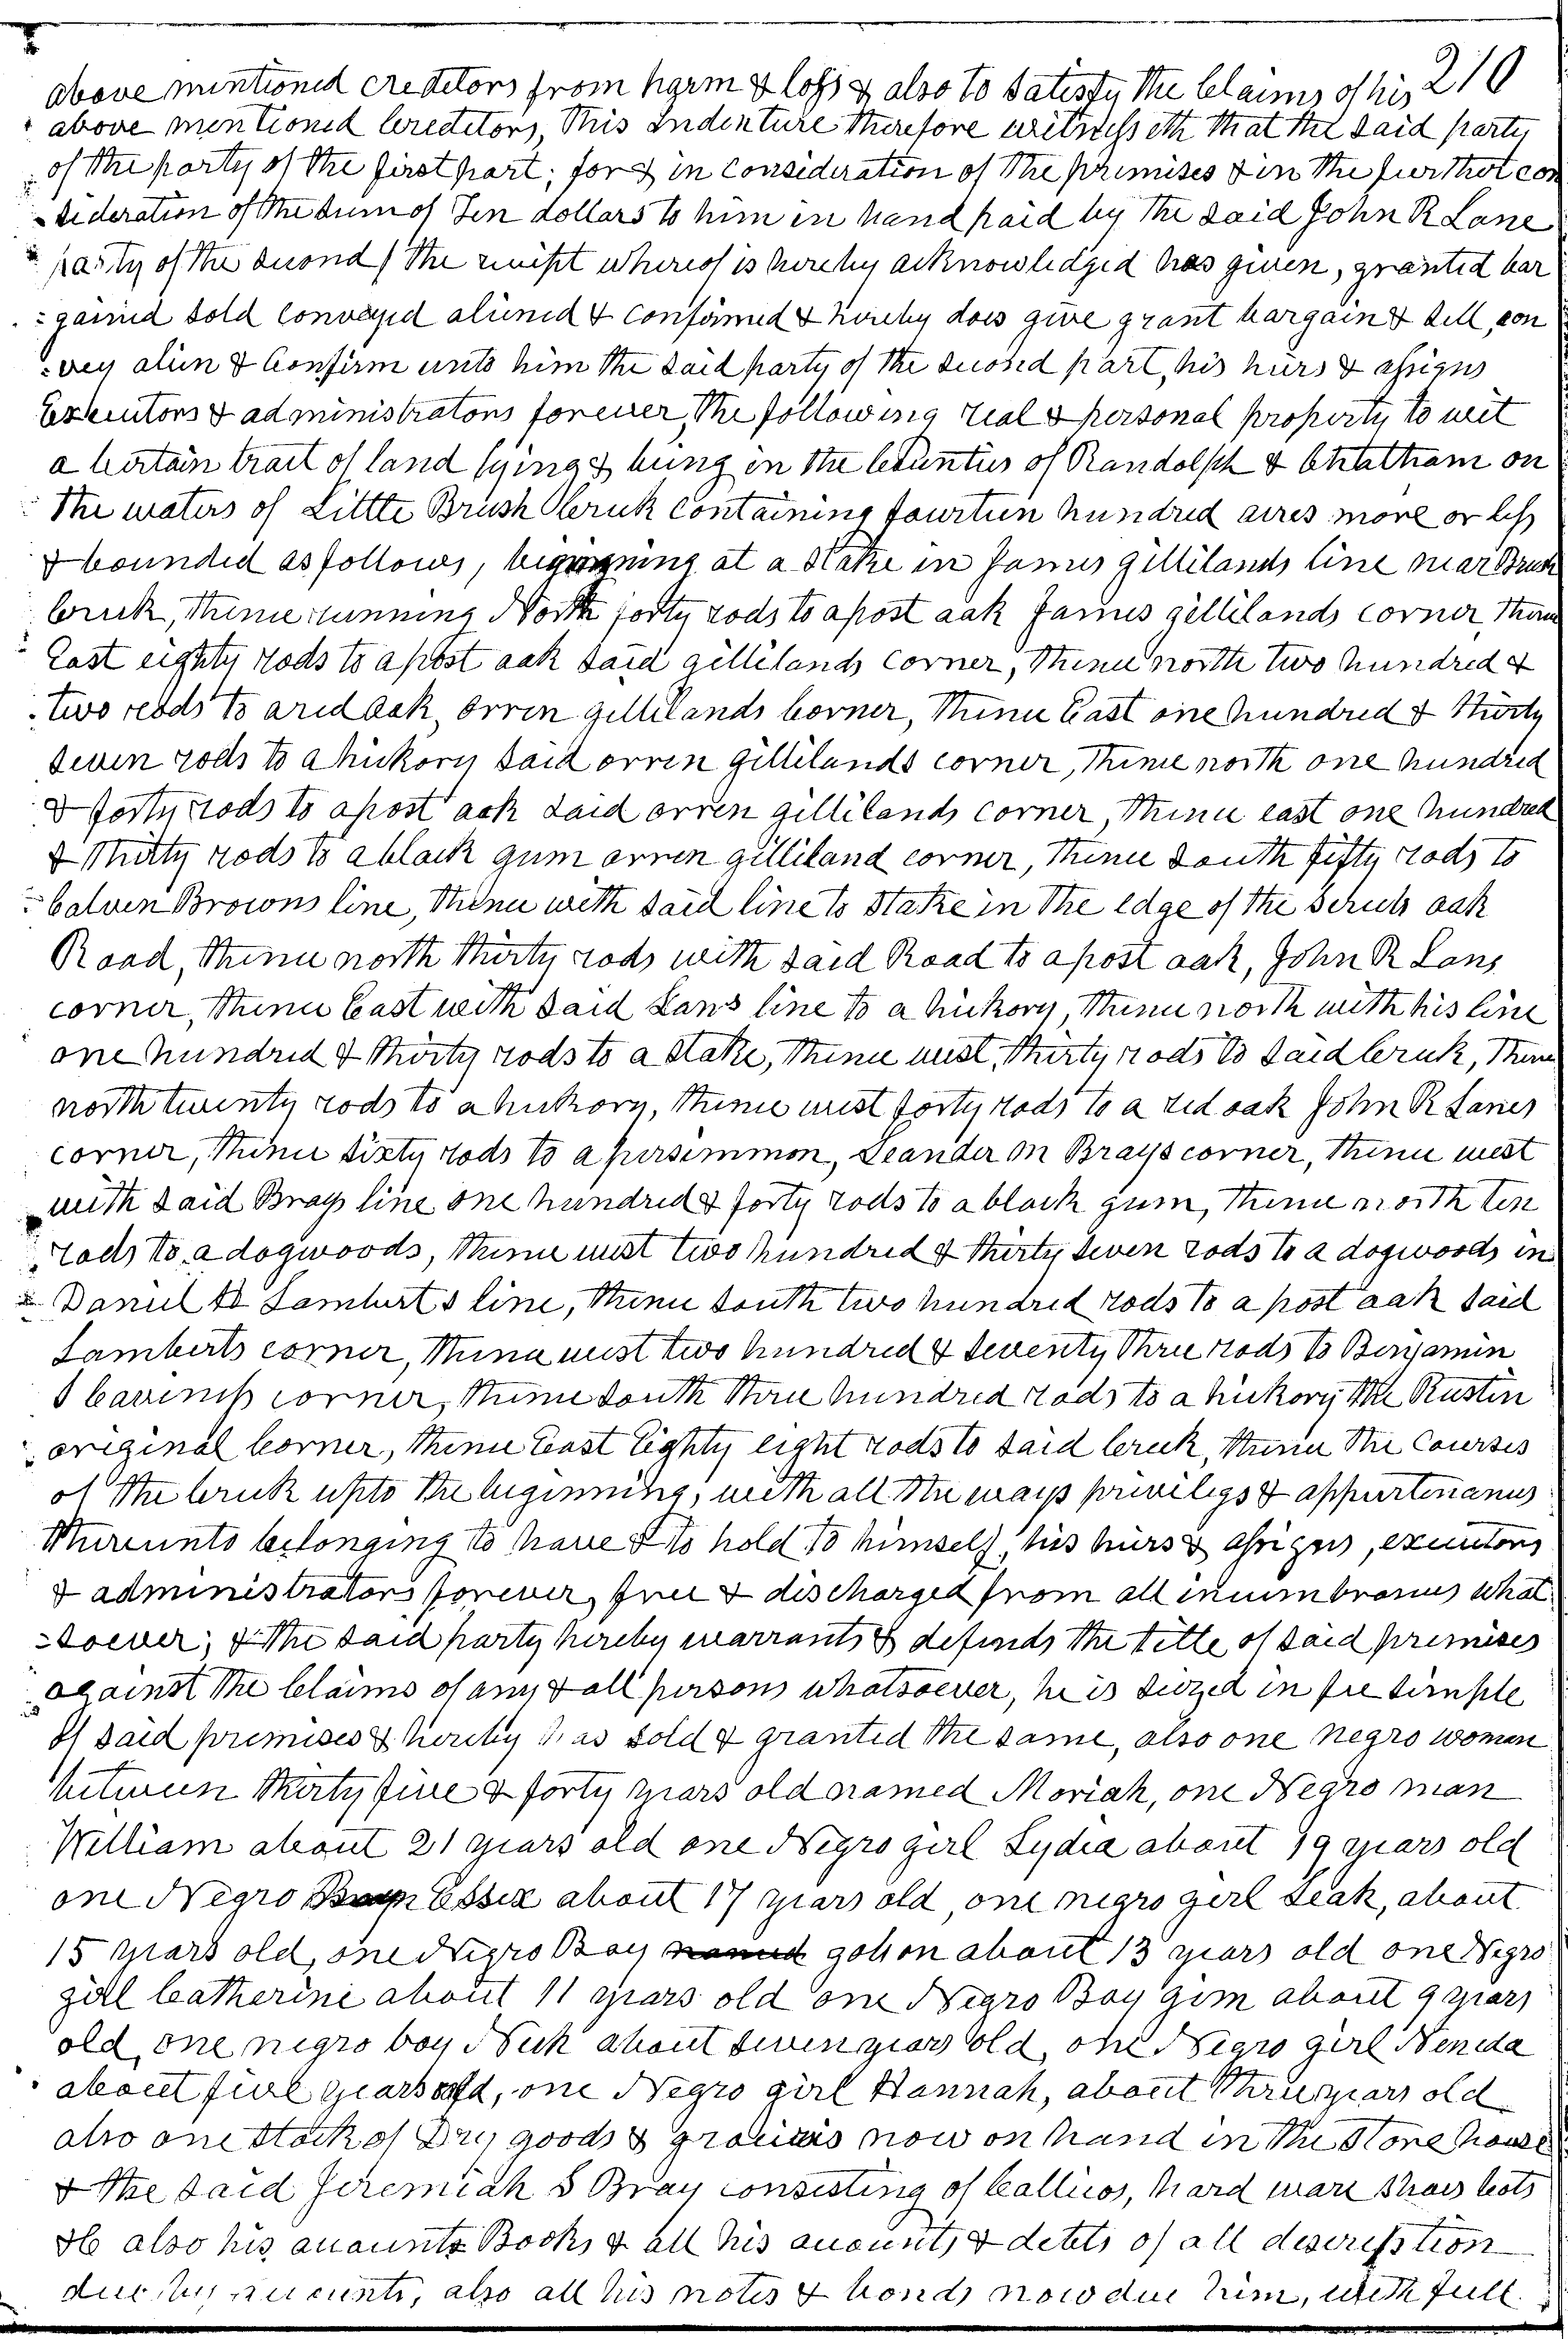 210
above mentioned creditors from harm & loss & also to satisfy the claims of his
above mentioned Creditors, this indenture therefore witnesseth that the said party
of the party of the first part; for & in consideration of the premises & in the further con
-sideration of the sum of Ten dollars to him in hand paid by the said John R Lane
party of the second / the receipt whereof is hereby acknowledged has given, granted bar
-gained sold conveyed aliened & confirmed & hereby does give grant bargain & sell, con
-vey alien & Confirm unto him the said party of the second part, his heirs & assigns
Executors & administrators forever, the following real & personal property to wit
a Certain tract of land lying & being in the Counties of Randolph & Chatham on
the waters of Little Brush Creek containing fourteen hundred acres more or less
& bounded as follows, beginning at a stake in James gillilands line near Brush
Creek, thence running North forty rods to a post oak James gillilands corner, thence
East eighty rods to a post oak said gillilands corner, thence north two hundred &
two rods to a red oak, orren gillilands Corner, thence East one hundred & thirty
seven rods to a hickory said orren gillilands corner, thence north one hundred
& forty rods to a post oak said orren gillilands corner, thence east one hundred
& thirty rods to a black gum orren gilliland corner, thence south fifty rods to
Calven Browns line, thence with said line to stake in the edge of the scrub oak
Road, thence north thirty rods with said Road to a post oak, John R Lans
corner, thence East with said Lans line to a hickory, thence north with his line
one hundred & thirty rods to a stake, thence west, thirty rods to said Creek, thence
north twenty rods to a hickory, thence west forty rods to a red oak John R Lanes
corner, thence sixty rods to a persimmon, Leander M Brays corner, thence west
with said Brays line one hundred & forty rods to a black gum, thence north ten
rods to a dogwoods, thence west two hundred & thirty seven rods to a dogwoods in
Daniel Lamberts line, thence south two hundred rods to a post oak said
Lamberts corner, thence west two hundred & seventy three rods to Benjamin
S Caviness corner, thence south three hundred rods to a hickory the Rustin
original Corner, thence East Eighty eight rods to said Creek, thence the Courses
of the Creek up to the beginning, with all the ways privileges & appurtenances
thereunto belonging to have & to hold to himself, his heirs & assigns, executors
& administrators forever, free & discharged from all incumbrances what
-soever; & the said party hereby warrants & defends the title of said premises
against the Claims of any & all persons whatsoever, he is seized in fee simple
of said premises & hereby has sold & granted the same, also one negro woman
between thirty five & forty years old named Moriah, one Negro man
William about 21 years old one Negro girl Lydia about 19 years old
one Negro Boy Essex about 17 years old, one negro girl Leak, about
15 years old, one Negro Boy named gohon about 13 years old one Negro
girl Catherine about 11 years old one Negro Boy gim about 9 years
old, one negro boy Nick about seven years old, one Negro girl Nenda
about five years old, one Negro girl Hannah, about three years old
also one stock of Dry goods & groceries now on hand in the store house
& the said Jeremiah S Bray consisting of Callicos, hard ware shoes bots
&c also his accounts Books & all his accounts & debts of all description
due by accounts, also all his notes & bonds now due him, with full